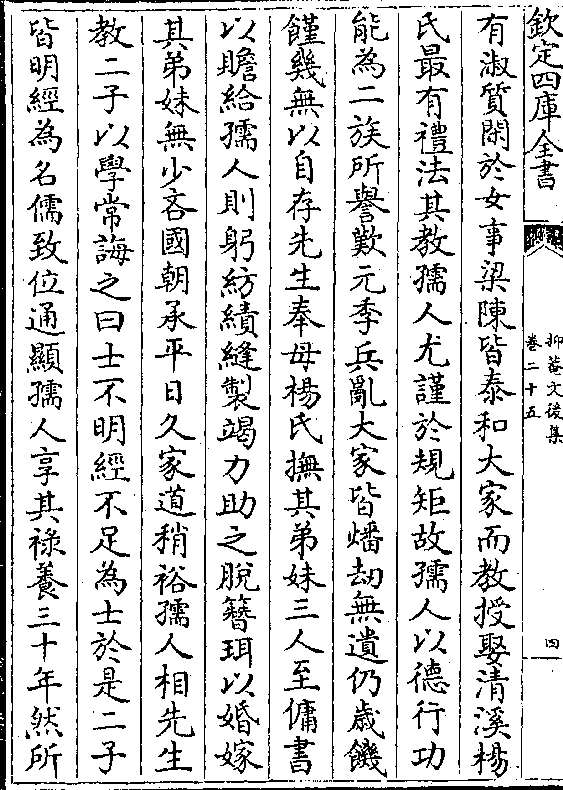 欽定四庫全書
抑菴文後集
卷二十五
四
有淑質閑於女事梁陳皆泰和大家而教授娶清溪楊
氏最有禮法其教孺人尤謹於規矩故孺人以德行功
能為二族所譽歎元季兵亂大家皆燔劫無遺仍歲饑
饉幾無以自存先生奉母楊氏撫其弟妹三人至傭書
以贍給孺人則躬紡績縫製竭力助之脫簪珥以婚嫁
其弟妹無少吝國朝承平日久家道稍裕孺人相先生
教二子以學常誨之曰士不明經不足為士於是二子
皆明經為名儒致位通顯孺人享其祿養三十年然所